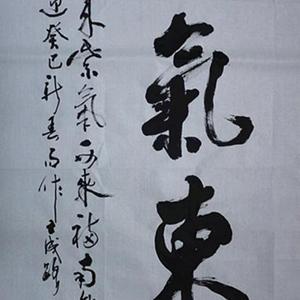 氣東
来紫氣西來福南
運癸巳新春作